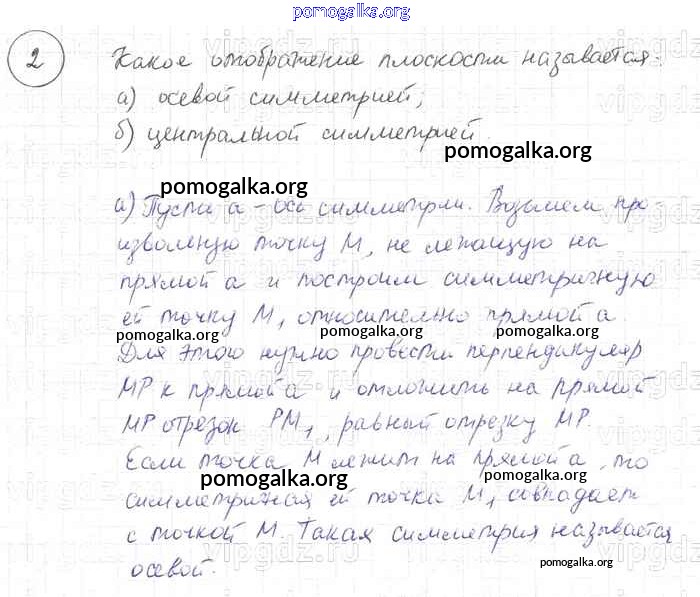 pomogalka.org
2 Какое отображение плоскости называется:
а) осевой симметрией;
б) центральной симметрией.
pomogalka.org
pomogalka.org
а) Пусть а - ось симметрии. Возьмем про
извольную точку М, не лежащую на
прямой а и построим симметричную
ей точку М₁ относительно прямой а.
pomogalka.org pomogalka.org pomogalka.org
Для этого нужно провести перпендикуляр
МР к прямой а и отложить на прямой
МР отрезок РМ₁, равный отрезку МР.
Если точка М лежит на прямой а, то
pomogalka.org
симметричная ей точка М₁ совпадает
с точкой М. Такая симметрия называется
pomogalka.org
осевой.